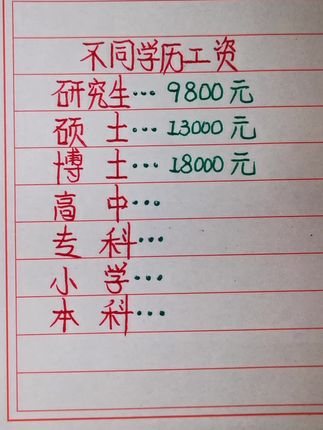 不同学历工资
研究生… 9800元
硕士… 13000元
博士… 18000元
高中…
专科…
小学…
本科…